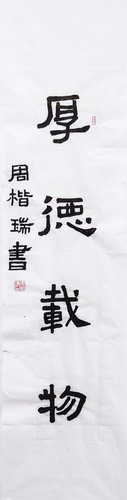 厚德載物
周楷瑞書